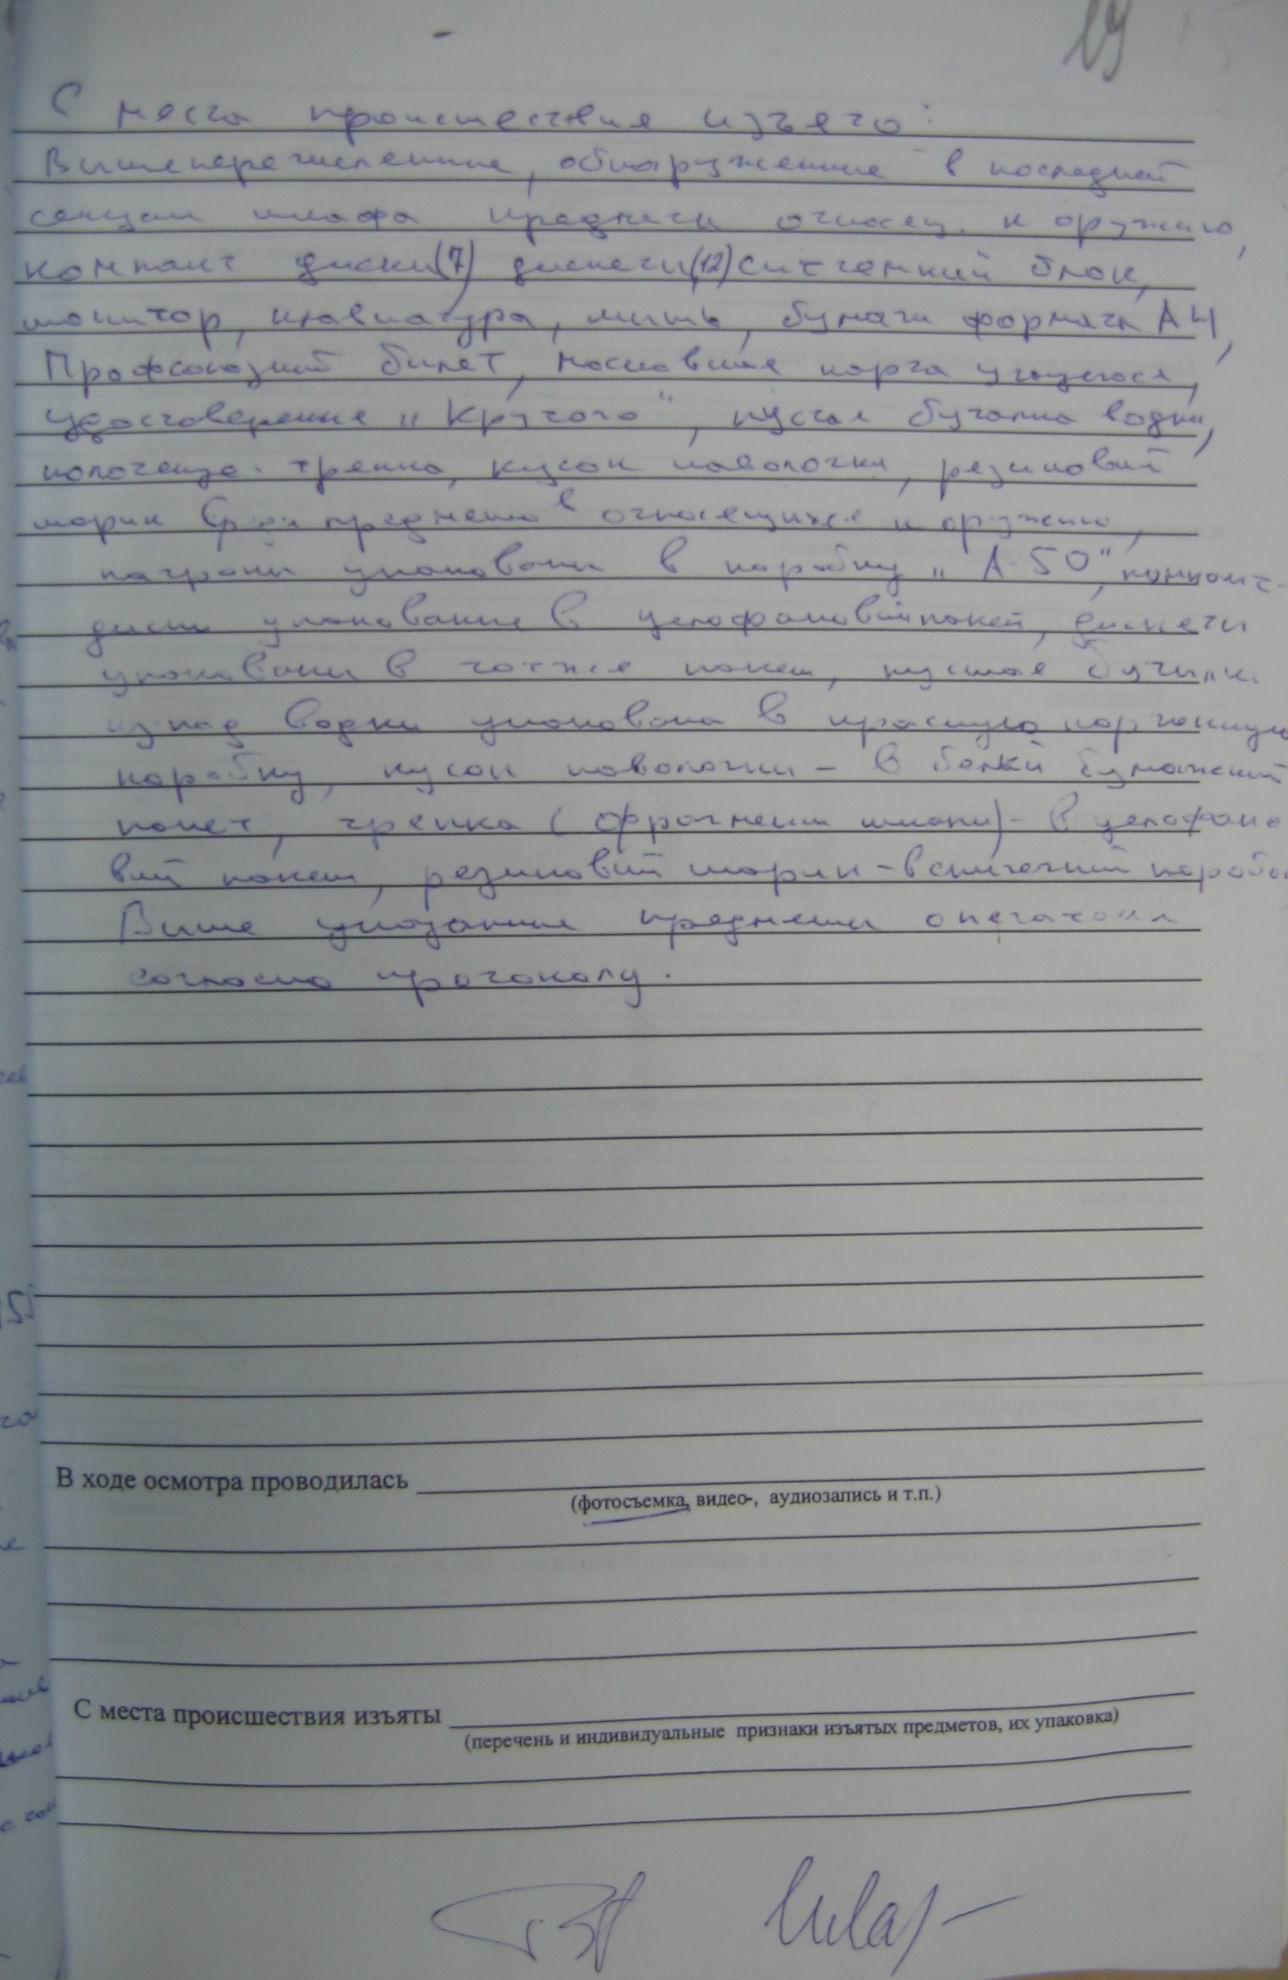 29
С места происшествия изъято:
Вышеперечисленные, обнаруженные в последней
секции шкафа предметы относящ. к оружию,
компакт диски(7) дискеты(12) системный блок,
монитор, клавиатура, мышь, бумаги формата А4,
Профсоюзный билет, московская карта учащегося,
удостоверение "Крутого", пустая бутылка водки,
полотенце. тряпка, кусок наволочки, резиновый
шарик предметов относящихся к оружию,
патроны упакованы в коробку "А-50", компакт-
диски упакованные в целофановый пакет, дискеты
упакованы в тот же пакет, пустая бутылка
из под водки упакована в красную картонную
коробку, кусок наволочки - в белый бумажный
пакет, тряпка (фрагмент ) - в целофано
вый пакет, резиновый шарик - в спичечный
Выше указанные предметы опечатаны
согласно протоколу.
В ходе осмотра проводилась
(фотосъемка, видео-, аудиозапись и т.п.)
С места происшествия изъяты
(перечень и индивидуальные признаки изъятых предметов, их упаковка)